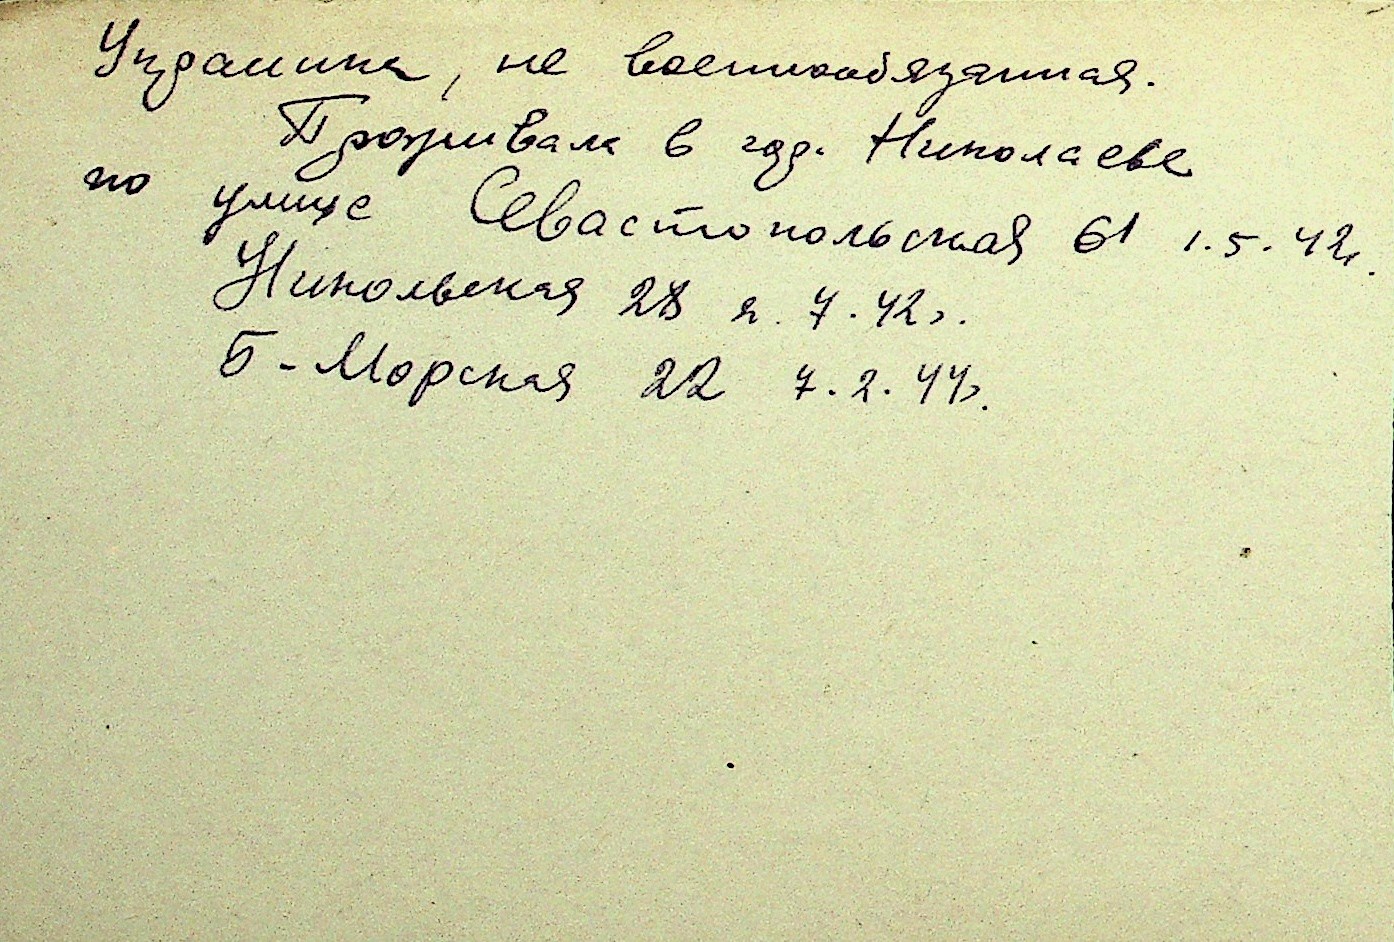 Украинка, не военнообязанная.
Проживала в гор. Николаеве
по улице Севастопольская 61 1.5.42г.
Никольская 28 2.7.42г.
Б-Морская 22 7.2.44г.